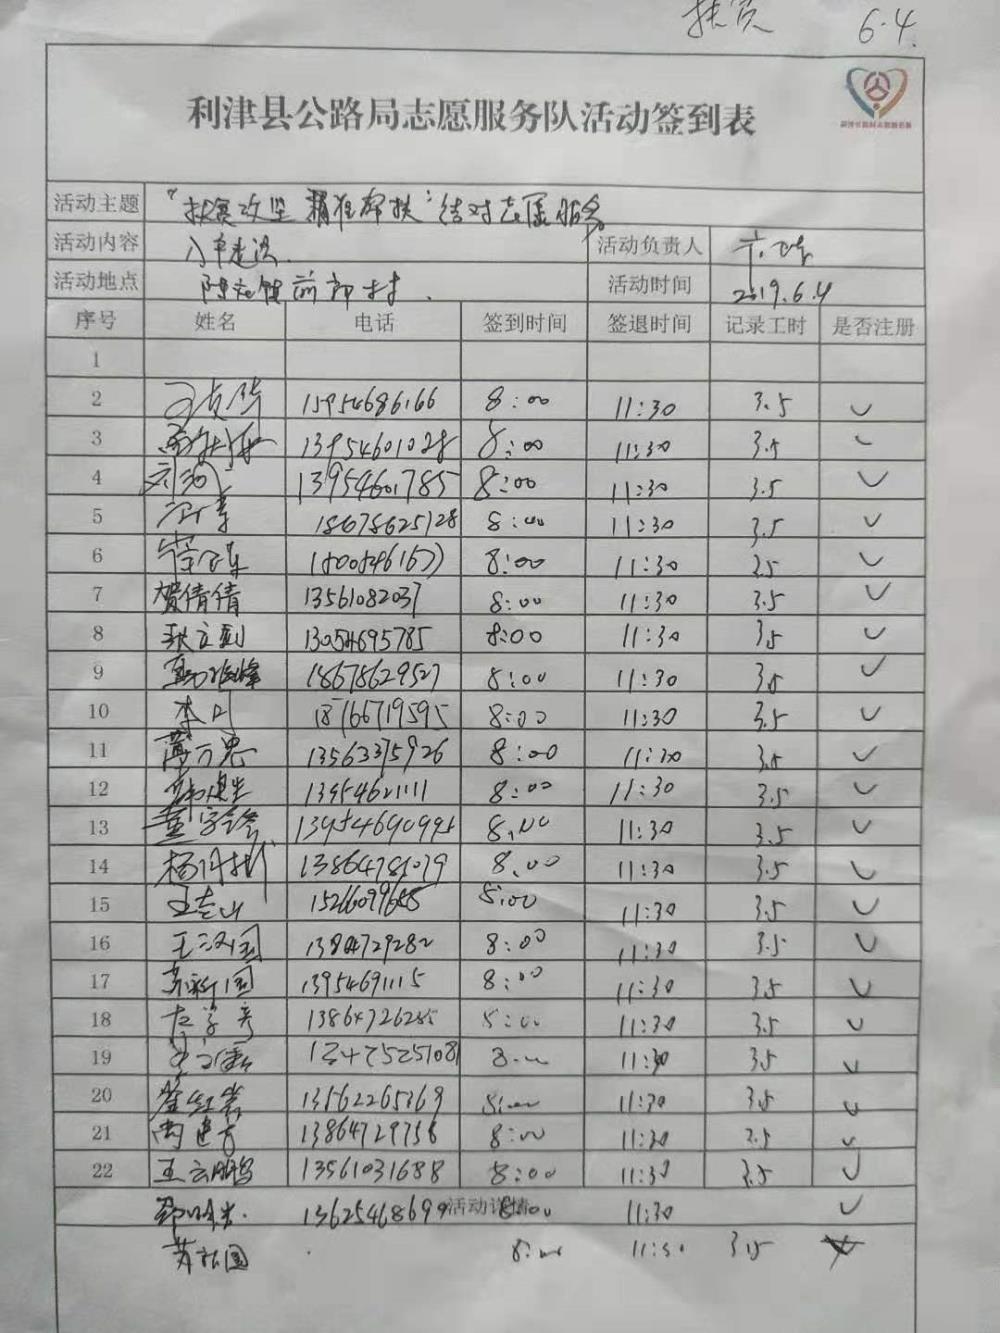 扶贫 6.4.
利津县公路局志愿服务队活动签到表
活动主题 "扶贫攻坚 精准帮扶"结对志愿服务
活动内容 入户走访. 活动负责人
活动地点 陈庄镇前郭村. 活动时间 2019.6.4
序号 姓名 电话 签到时间 签退时间 记录工时 是否注册
1
2 15954686166 8:00 11:30 3.5 ✓
3 13954601028 8:00 11:30 3.5 ✓
4 13954601785 8:00 11:30 3.5 ✓
5 18678625128 8:00 11:30 3.5 ✓
6 8:00 11:30 3.5 ✓
7 贺倩倩 13561082037 8:00 11:30 3.5 ✓
8 耿立刚 13054695785 8:00 11:30 3.5 ✓
9 18678629527 8:00 11:30 3.5 ✓
10 18766719595 8:00 11:30 3.5 ✓
11 薄万忠 13563375926 8:00 11:30 3.5 ✓
12 13954621111 8:00 11:30 3.5 ✓
13 8:00 11:30 3.5 ✓
14 8:00 11:30 3.5 ✓
15 王志山 8:00 11:30 3.5 ✓
16 王汉国 8:00 11:30 3.5 ✓
17 13954691115 8:00 11:30 3.5 ✓
18 13864726285 8:00 11:30 3.5 ✓
19 8:00 11:30 3.5 ✓
20 13562265369 8:00 11:30 3.5 ✓
21 尚建方 13864729756 8:00 11:30 3.5 ✓
22 王云鹏 13561031688 8:00 11:30 3.5 ✓
活动详情
13625468699 8:00 11:30 ✓
8:00 11:30 3.5